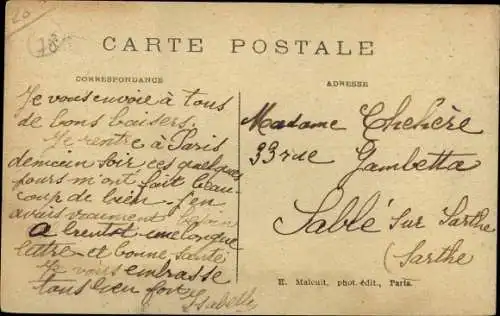 20
78
CARTE POSTALE
CORRESPONDANCE
ADRESSE
Je vous envoie à tous
de bons baisers.
Je rentre à Paris
demain soir ces quelques
jours m'ont fait beau-
coup de bien. J'en
avais vraiment besoin
A bientot une longue
lettre et bonne santé
Je vous embrasse
tous bien fort
Isabelle
Madame
33 rue Gambetta
Sablé sur Sarthe
(Sarthe)
E. Malcuit, phot.-édit., Paris.